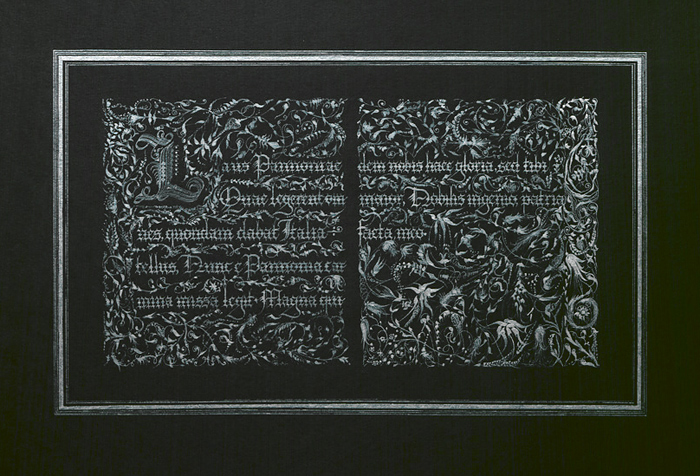 Laus Pannoniae
Quae legerent om
nes, quondam dabat Itala
tellus, Nunc e Pannonia car
mina missa legit. Magna qui
dem nobis haec gloria, sed tibi
maior, Nobilis ingenio, patria
facta meo